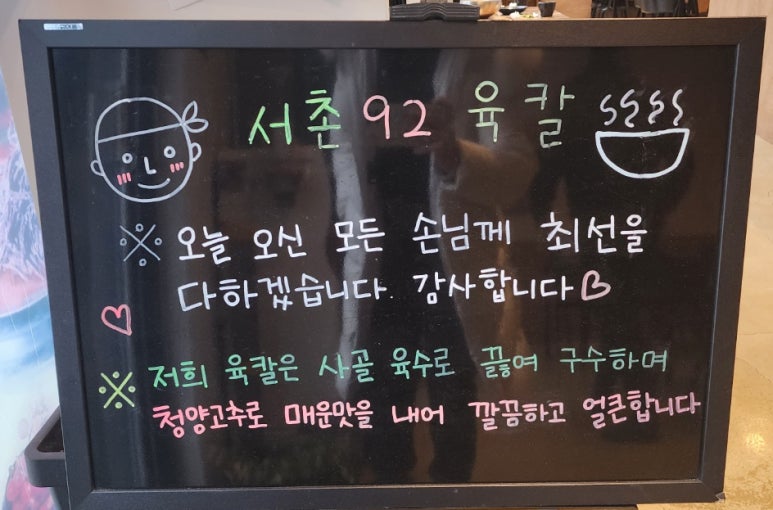 서촌 92 육칼
※ 오늘 오신 모든 손님께 최선을
다하겠습니다. 감사합니다♡
※ 저희 육칼은 사골 육수로 끓여 구수하며
청양고추로 매운맛을 내어 깔끔하고 얼큰합니다